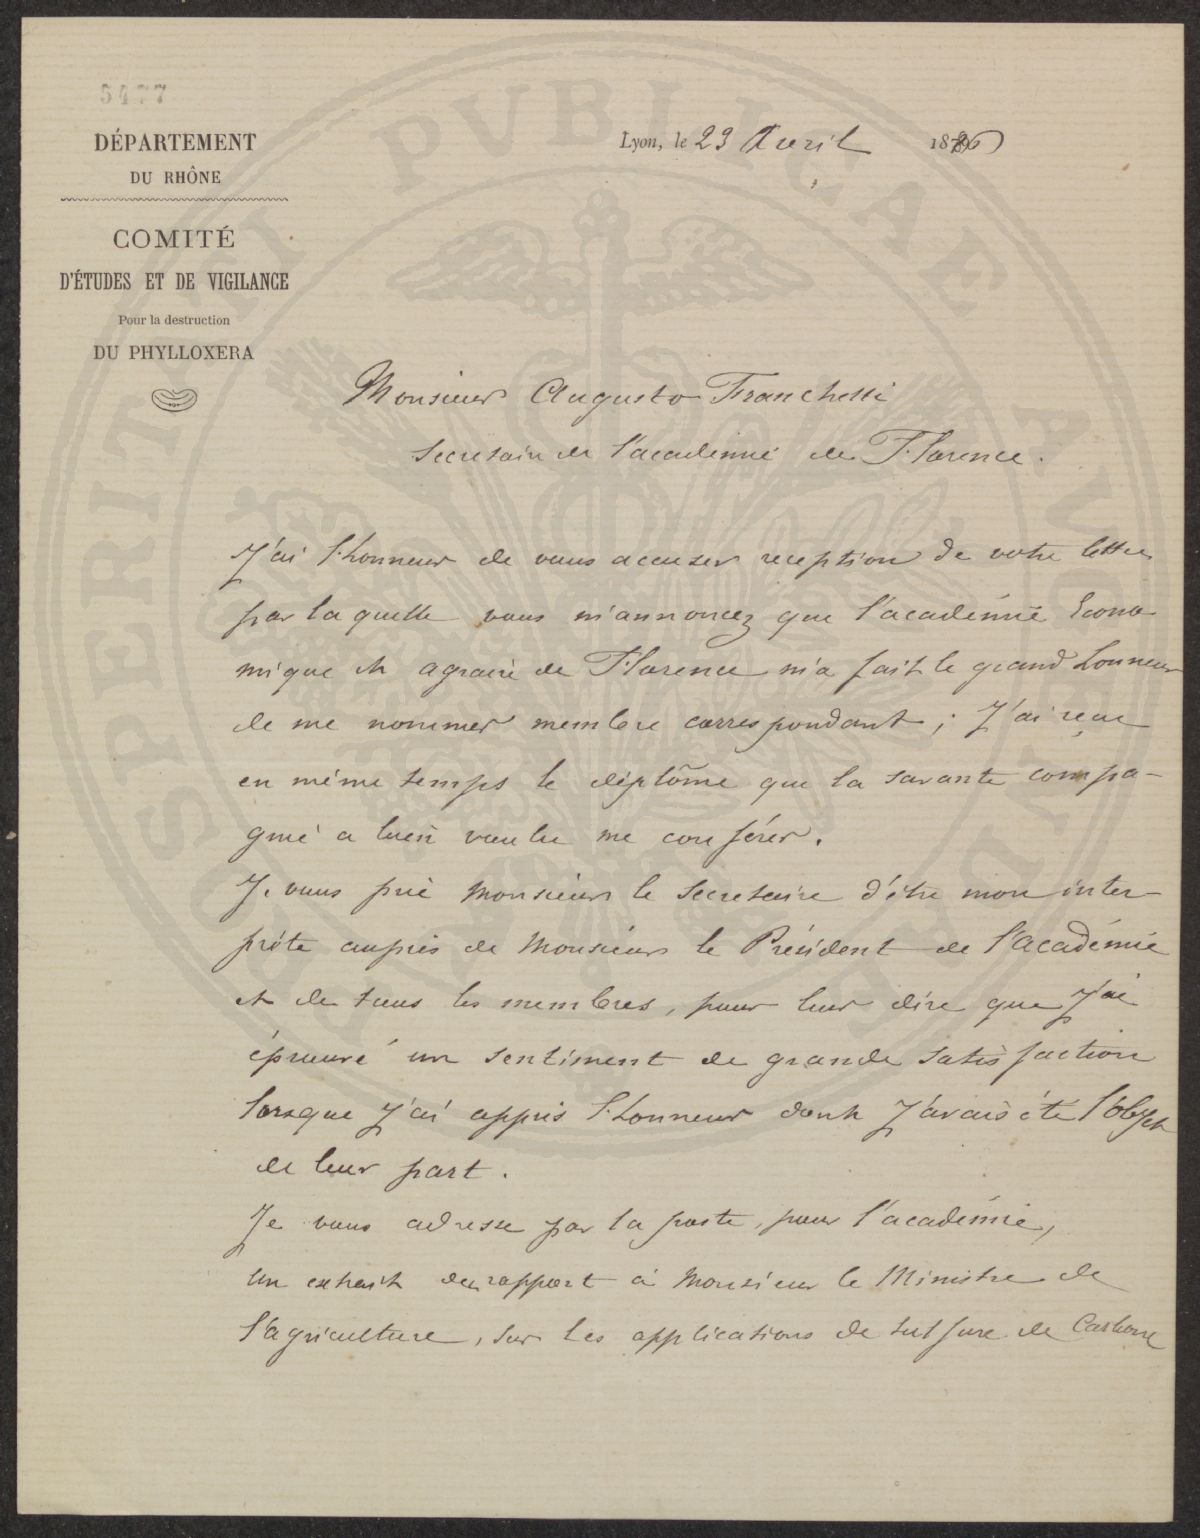 5477
DÉPARTEMENT
DU RHÔNE
COMITÉ
D'ÉTUDES ET DE VIGILANCE
Pour la destruction
DU PHYLLOXERA
Lyon, le 23 Avril 18
Monsieur Augusto Franchetti
Secretaire de l'academie de Florence.
J'ai l'honneur de vous accuser reception de votre lettre
par laquelle vous m'annoncez que l'académie Econo
mique et agraire de Florence m'a fait le grand honneur
de me nommer membre correspondant ; J'ai reçue
en même temps le diplôme que la savante compa-
gnie a bien voulu me conférer.
Je vous prie Monsieur le Secretaire d'être mon inter-
prète auprès de Monsieur le Président de l'académie
et de tous les membres, pour leur dire que J'ai
éprouvé un sentiment de grande satisfaction
lorsque J'ai appris l'honneur dont J'avais été l'objet
de leur part.
Je vous adresse par la poste, pour l'académie,
un extrait du rapport à Monsieur le Ministre de
l'agriculture, sur les applications de sulfure de Carbone
PROSPERITATI PVBLICAE AVGENDAE